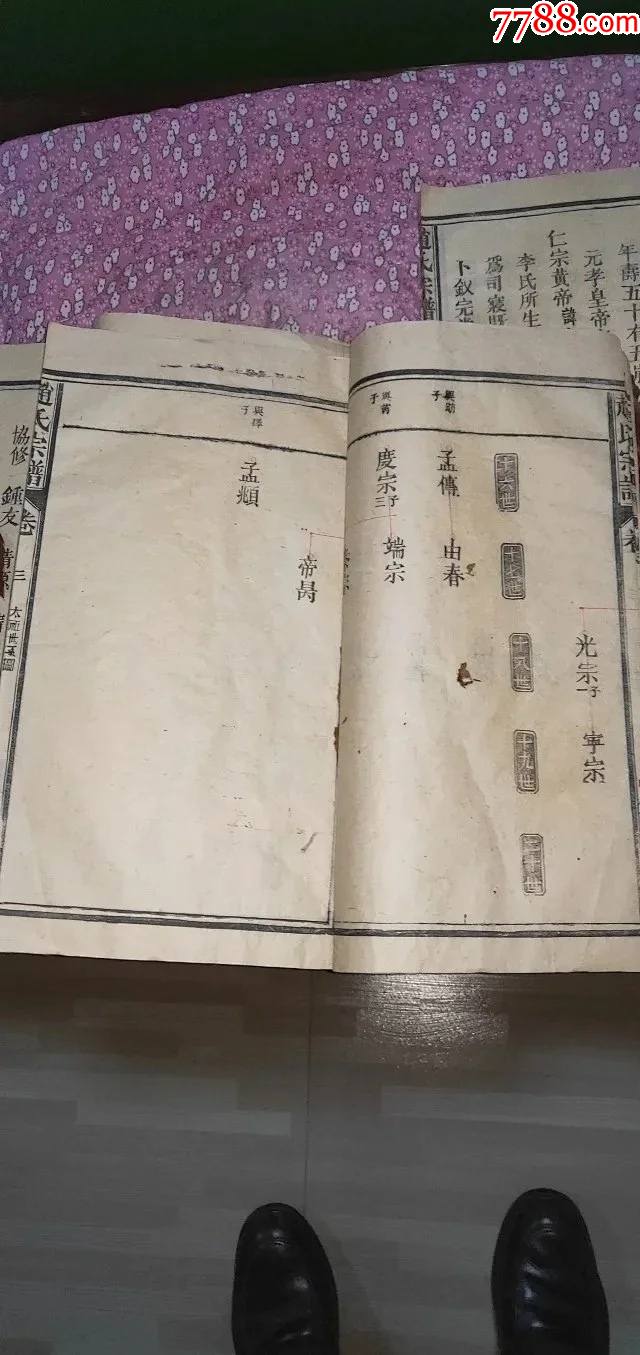 7788.com
年壽五十有五
元孝皇帝
仁宗黃帝諱
李氏所生
為司寢
卜釵完
趙氏宗譜
趙氏宗譜
光宗一子
寧宗
十六世
十七世
十八世
十九世
二十世
子
孟傳
由春
與芮
子
慶宗三子
端宗
帝昺
子
孟頫
趙氏宗譜
卷
三
協修
鍾友